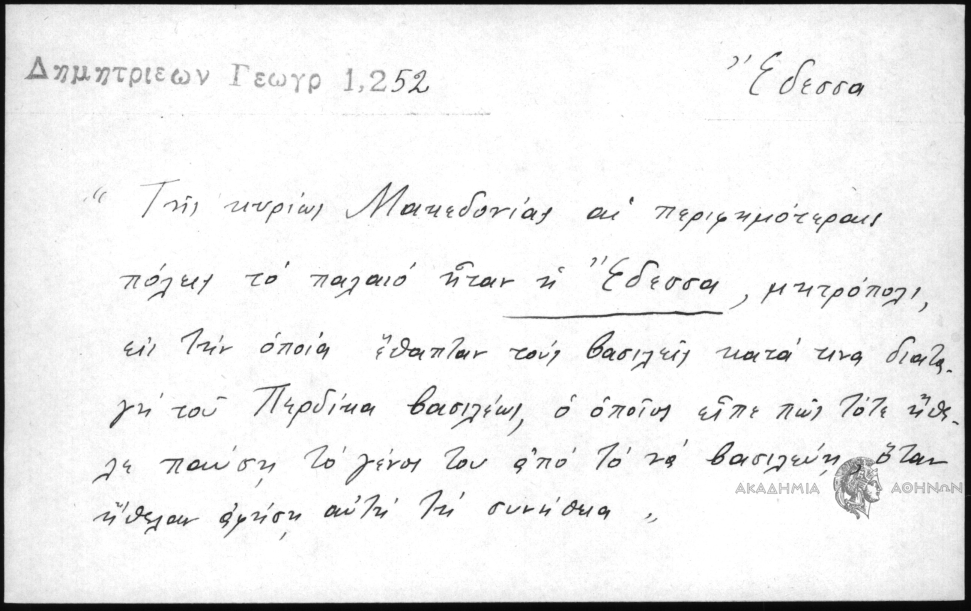 Δημητριεων Γεωγρ 1,252
Ἔδεσσα
“ Τῆς κυρίως Μακεδονίας αἱ περιφημότεραις
πόλεις τὸ παλαιό ἦταν ἡ Ἔδεσσα, μητρόπολι,
εἰς τὴν ὁποία ἔθαπταν τοὺς βασιλεῖς κατά τινα διατα-
γή τοῦ Περδίκα βασιλέως, ὁ ὁποῖος εἶπε πῶς τότε ἤθε-
λε παύσῃ τὸ γένος του ἀπό τὸ νά βασιλεύῃ, ὅταν
ἤθελαν ἀφήσῃ αὐτὴ τὴ συνήθεια „
ΑΚΑΔΗΜΙΑ ΑΘΗΝΩΝ